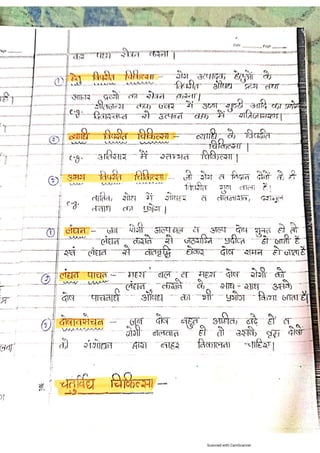 का पाय सेवन करना।
① हेतु विपरीत चिकित्सा :- रोग उत्पादक हेतुओं के
विपरीत औषध द्रव्य तथा
आहार द्रव्यों का सेवन करना।
e.g. शीतजन्य कफ ज्वर में उष्ण शुण्ठी आदि का प्रयोग
② व्याधि विपरीत चिकित्सा :- व्याधि के विपरीत
चिकित्सा।
e.g. अतिसार में स्तम्भन चिकित्सा।
③ उभय विपरीत चिकित्सा :- जो रोग व निदान दोनों के ही
विपरीत गुण वाला है।
e.g. वातिक शोथ में शोथहर व वातनाशक, दशमूल
क्वाथ का प्रयोग।
① लंघन :- जब रोगी अल्पबल व अल्प दोष युक्त हो तो
लंघन कराने से जठराग्नि प्रदीप्त हो जाती है
एवं लंघन से वातवृद्धि होकर दोष शमन हो जाता है
② लंघन पाचन :- मध्य बल व मध्य दोष रोगी को
लंघन कराने के साथ-साथ उसके
दोष पाचनार्थ औषध का भी प्रयोग किया जाता है।
③ दोषावसेचन :- जब दोष बहुत अधिक बढ़े हो व
रोगी बलवान हो तो उसके दोषों
को संशोधन द्वारा बाहर निकालना चाहिए।
चतुर्विध चिकित्सा :-
Scanned with CamScanner